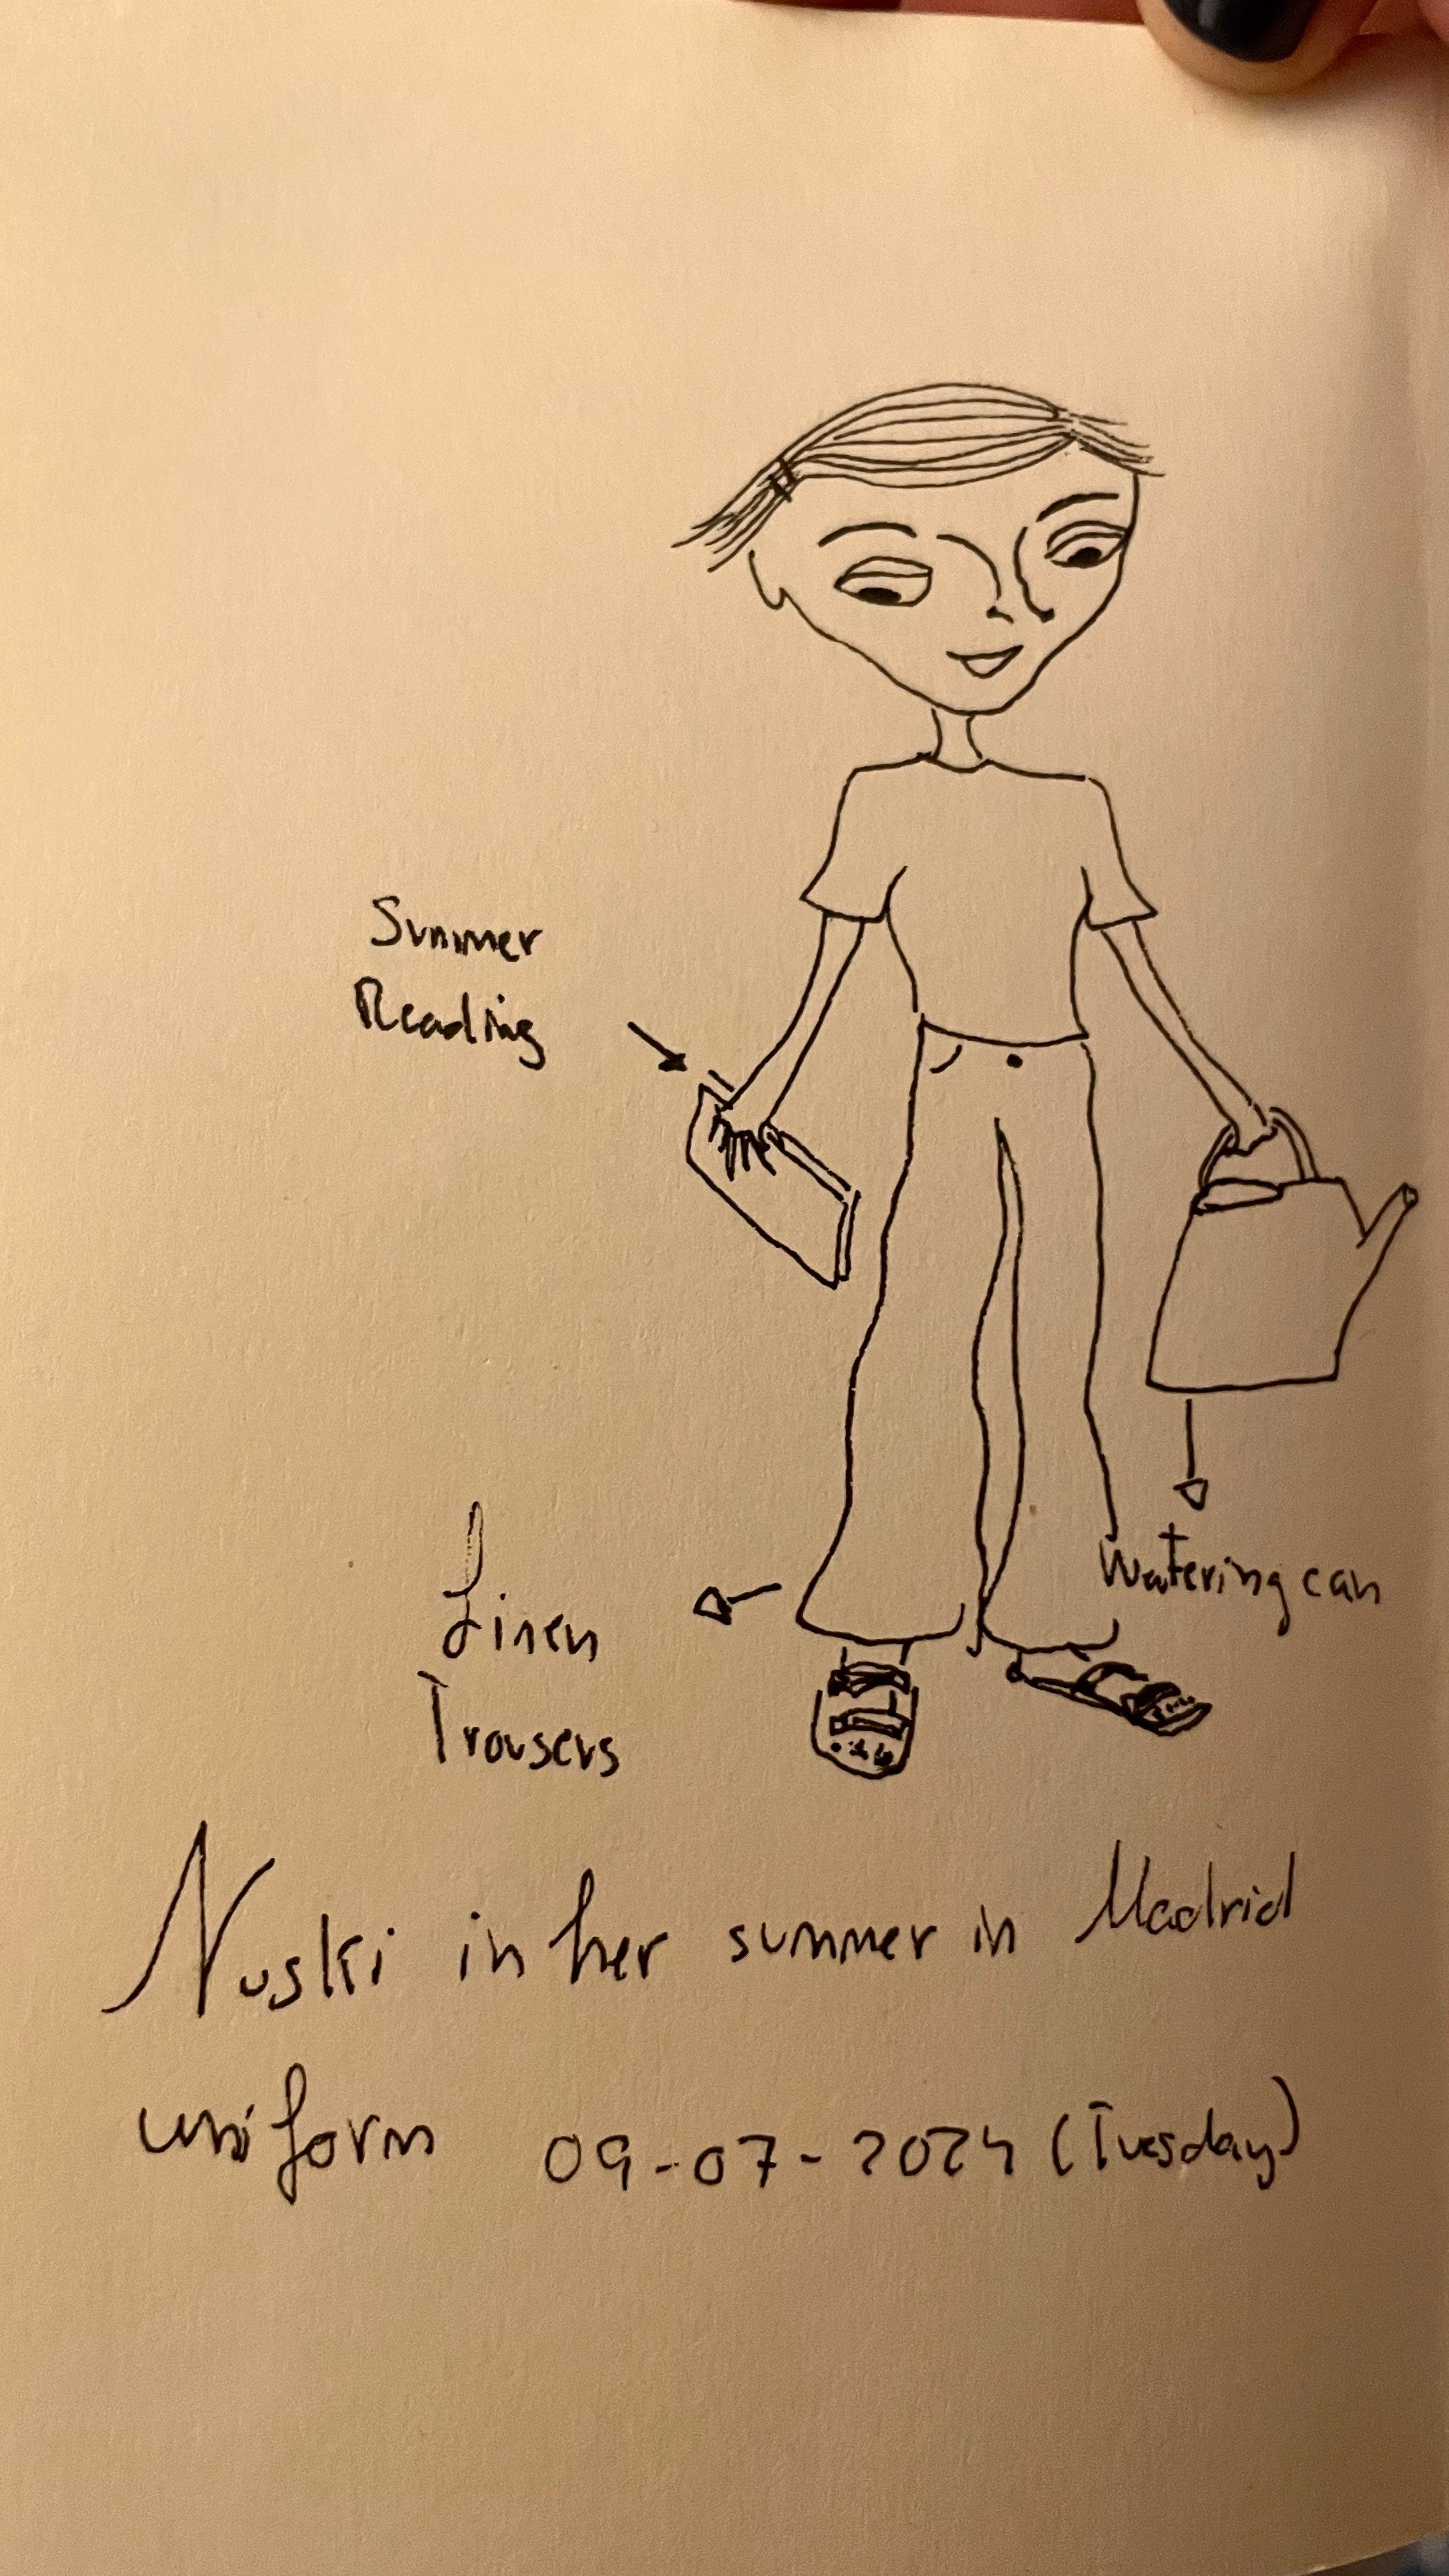 Summer
Reading
Linen
Trousers
Watering can
Nuski in her summer in Madrid
uniform 09-07-2024 (Tuesday)